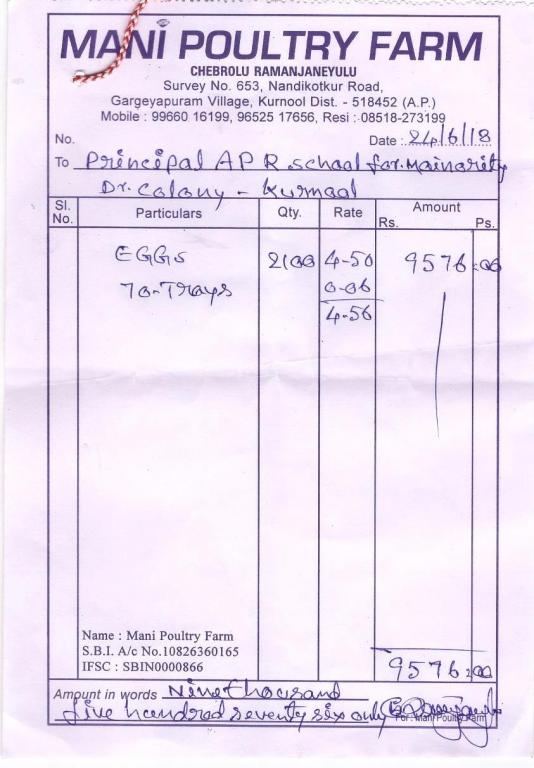 MANI POULTRY FARM
CHEBROLU RAMANJANEYULU
Survey No. 653, Nandikotkur Road,
Gargeyapuram Village, Kurnool Dist. - 518452 (A.P.)
Mobile : 99660 16199, 96525 17656, Resi : 08518-273199
No. Date : 24/6/18
To Principal A P R school for. Mainarity
Dr. Colony - Kurnool
Sl. No. Particulars Qty. Rate Amount Rs. Ps.
EGGs 2100 4-50 9576:00
70-Trays 0-06
4-56
Name : Mani Poultry Farm
S.B.I. A/c No.10826360165
IFSC : SBIN0000866
9576:00
Amount in words Nine thousand
five hundred seventy six only
For : Mani Poultry Farm